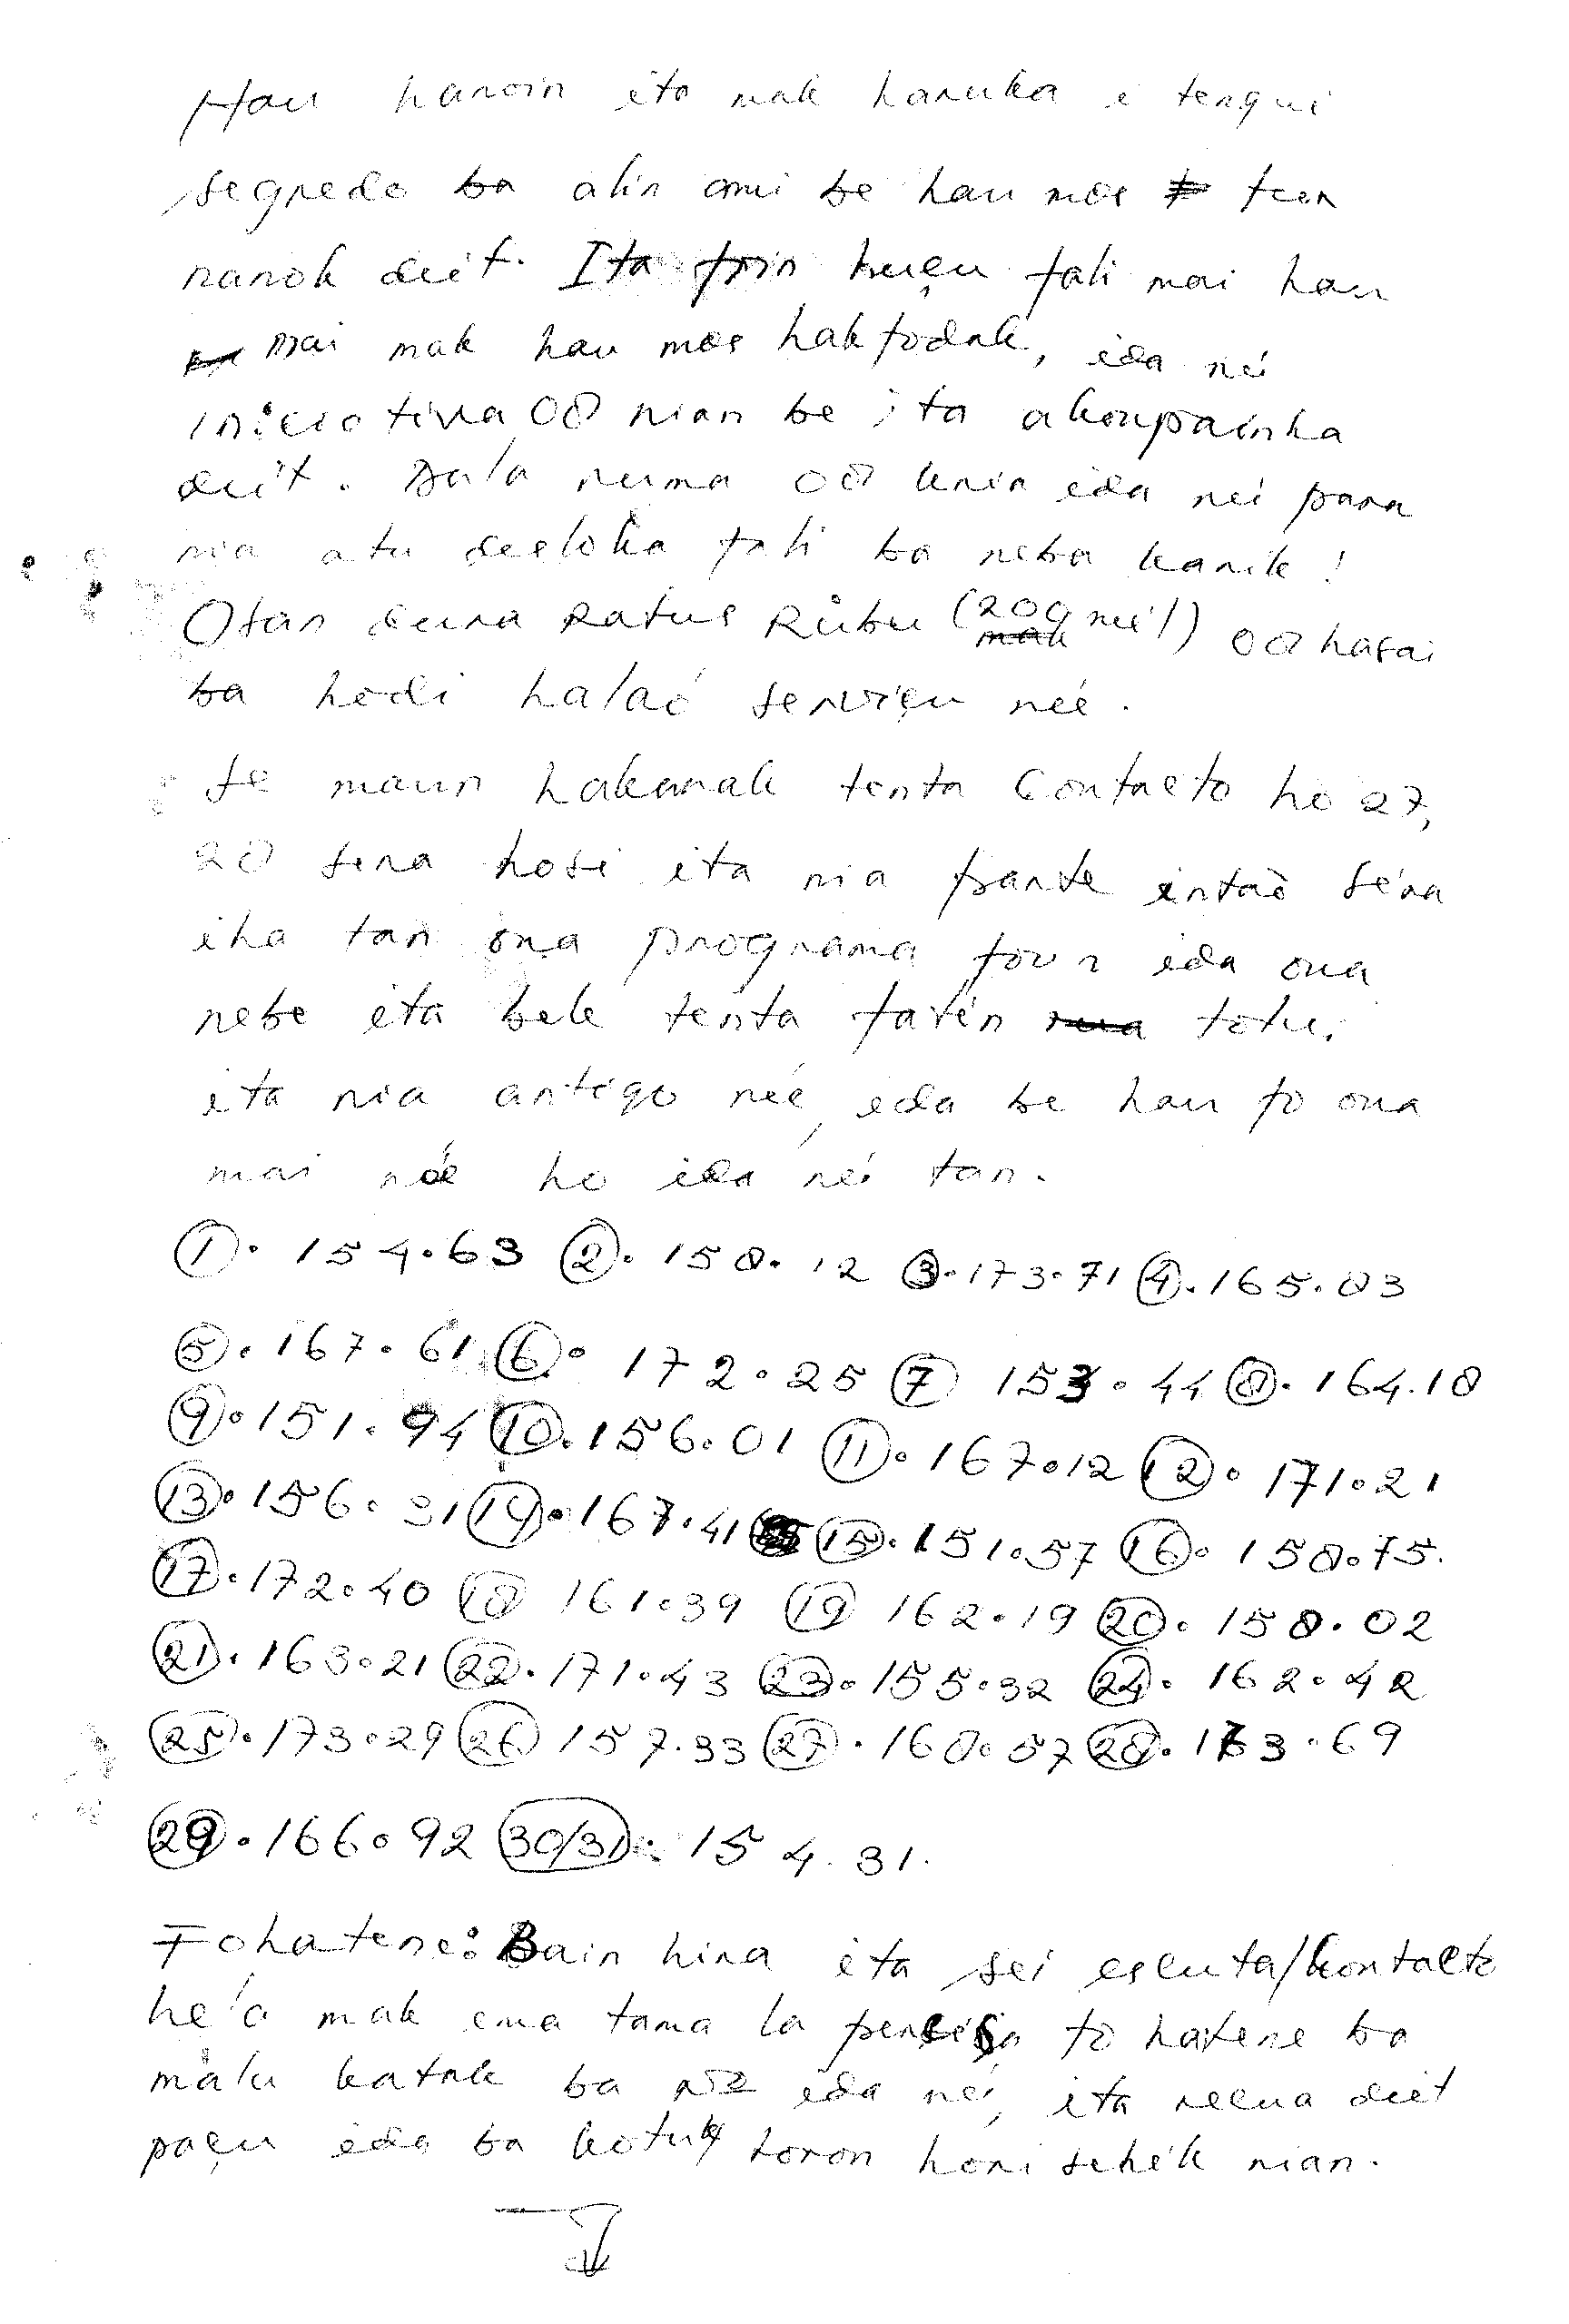 Hau hanoin ita mak haruka i tengui
segredo ba alin ami be hau mos tur
nanok deit. Ita foin huçu fali mai hau
mai mak hau mos hakfodak, ida né
iniciativa 08 nian be ita akompainha
deit. Dala ruma 08 kria ida né para
nia atu desloka fali ba neba karik!
Osan duna Ratus Ribu (200 mil) 08 hasai
ba hodi halaó serviçu neé.
Se maun hakarak tenta Contacto ho 27,
28 sira hosi ita nia parte intaõ sira
iha tan ona programa foun ida ona
nebe ita bele tenta fatin totu.
ita nia antigo neé, ida be hau fo ona
mai neé ho ida né tan.
① . 154.63 ② . 158.12 ③ . 173.71 ④ . 165.83
⑤ . 167.61 ⑥ . 172.25 ⑦ 153.44 ⑧ . 164.18
⑨ . 151.94 ⑩ . 156.01 ⑪ . 167.12 ⑫ . 171.21
⑬ . 156.31 ⑭ . 167.41 ⑮ . 151.57 ⑯ . 158.75.
⑰ . 172.40 ⑱ 161.39 ⑲ 162.19 ⑳ . 158.02
㉑ . 163.21 ㉒ . 171.43 ㉓ . 155.32 ㉔ . 162.42
㉕ . 173.29 ㉖ 157.33 ㉗ . 160.57 ㉘ . 163.69
㉙ . 166.92 (30/31) . 154.31.
Fo hatene: Bain hira ita sei escuta/kontacto
he'a mak ema tama la persija fo hatene ba
malu katak ba ida né, ita recua deit
paçu ida ba kotuk loron hori sehik nian.